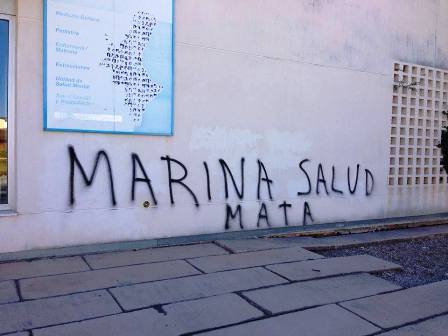 Medicina General
Pediatría
Enfermería /
Matrona
Extracciones
Unidad de
Salud Mental
MARINA SALUD
MATA